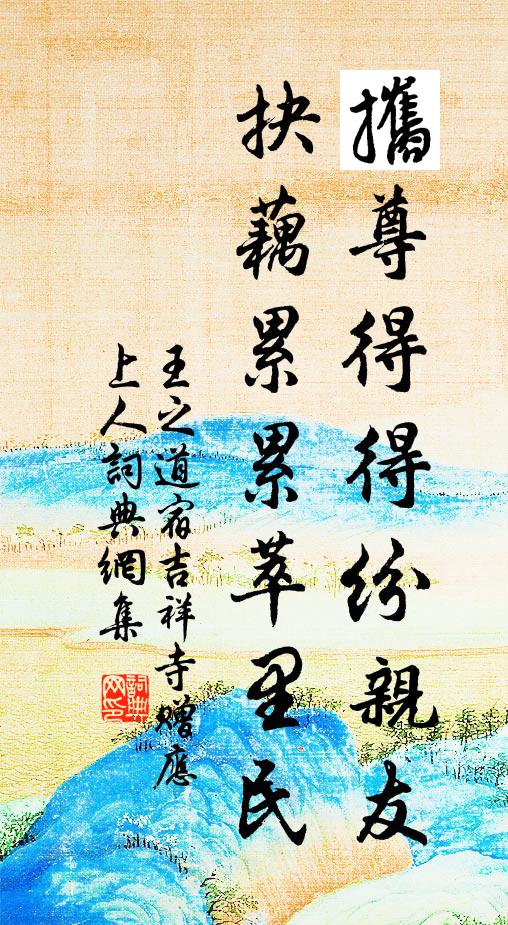 攜尊得得紛親友
抉藕累累萃里民
王之道宿吉祥寺贈應
上人詞典網集
詞典网印